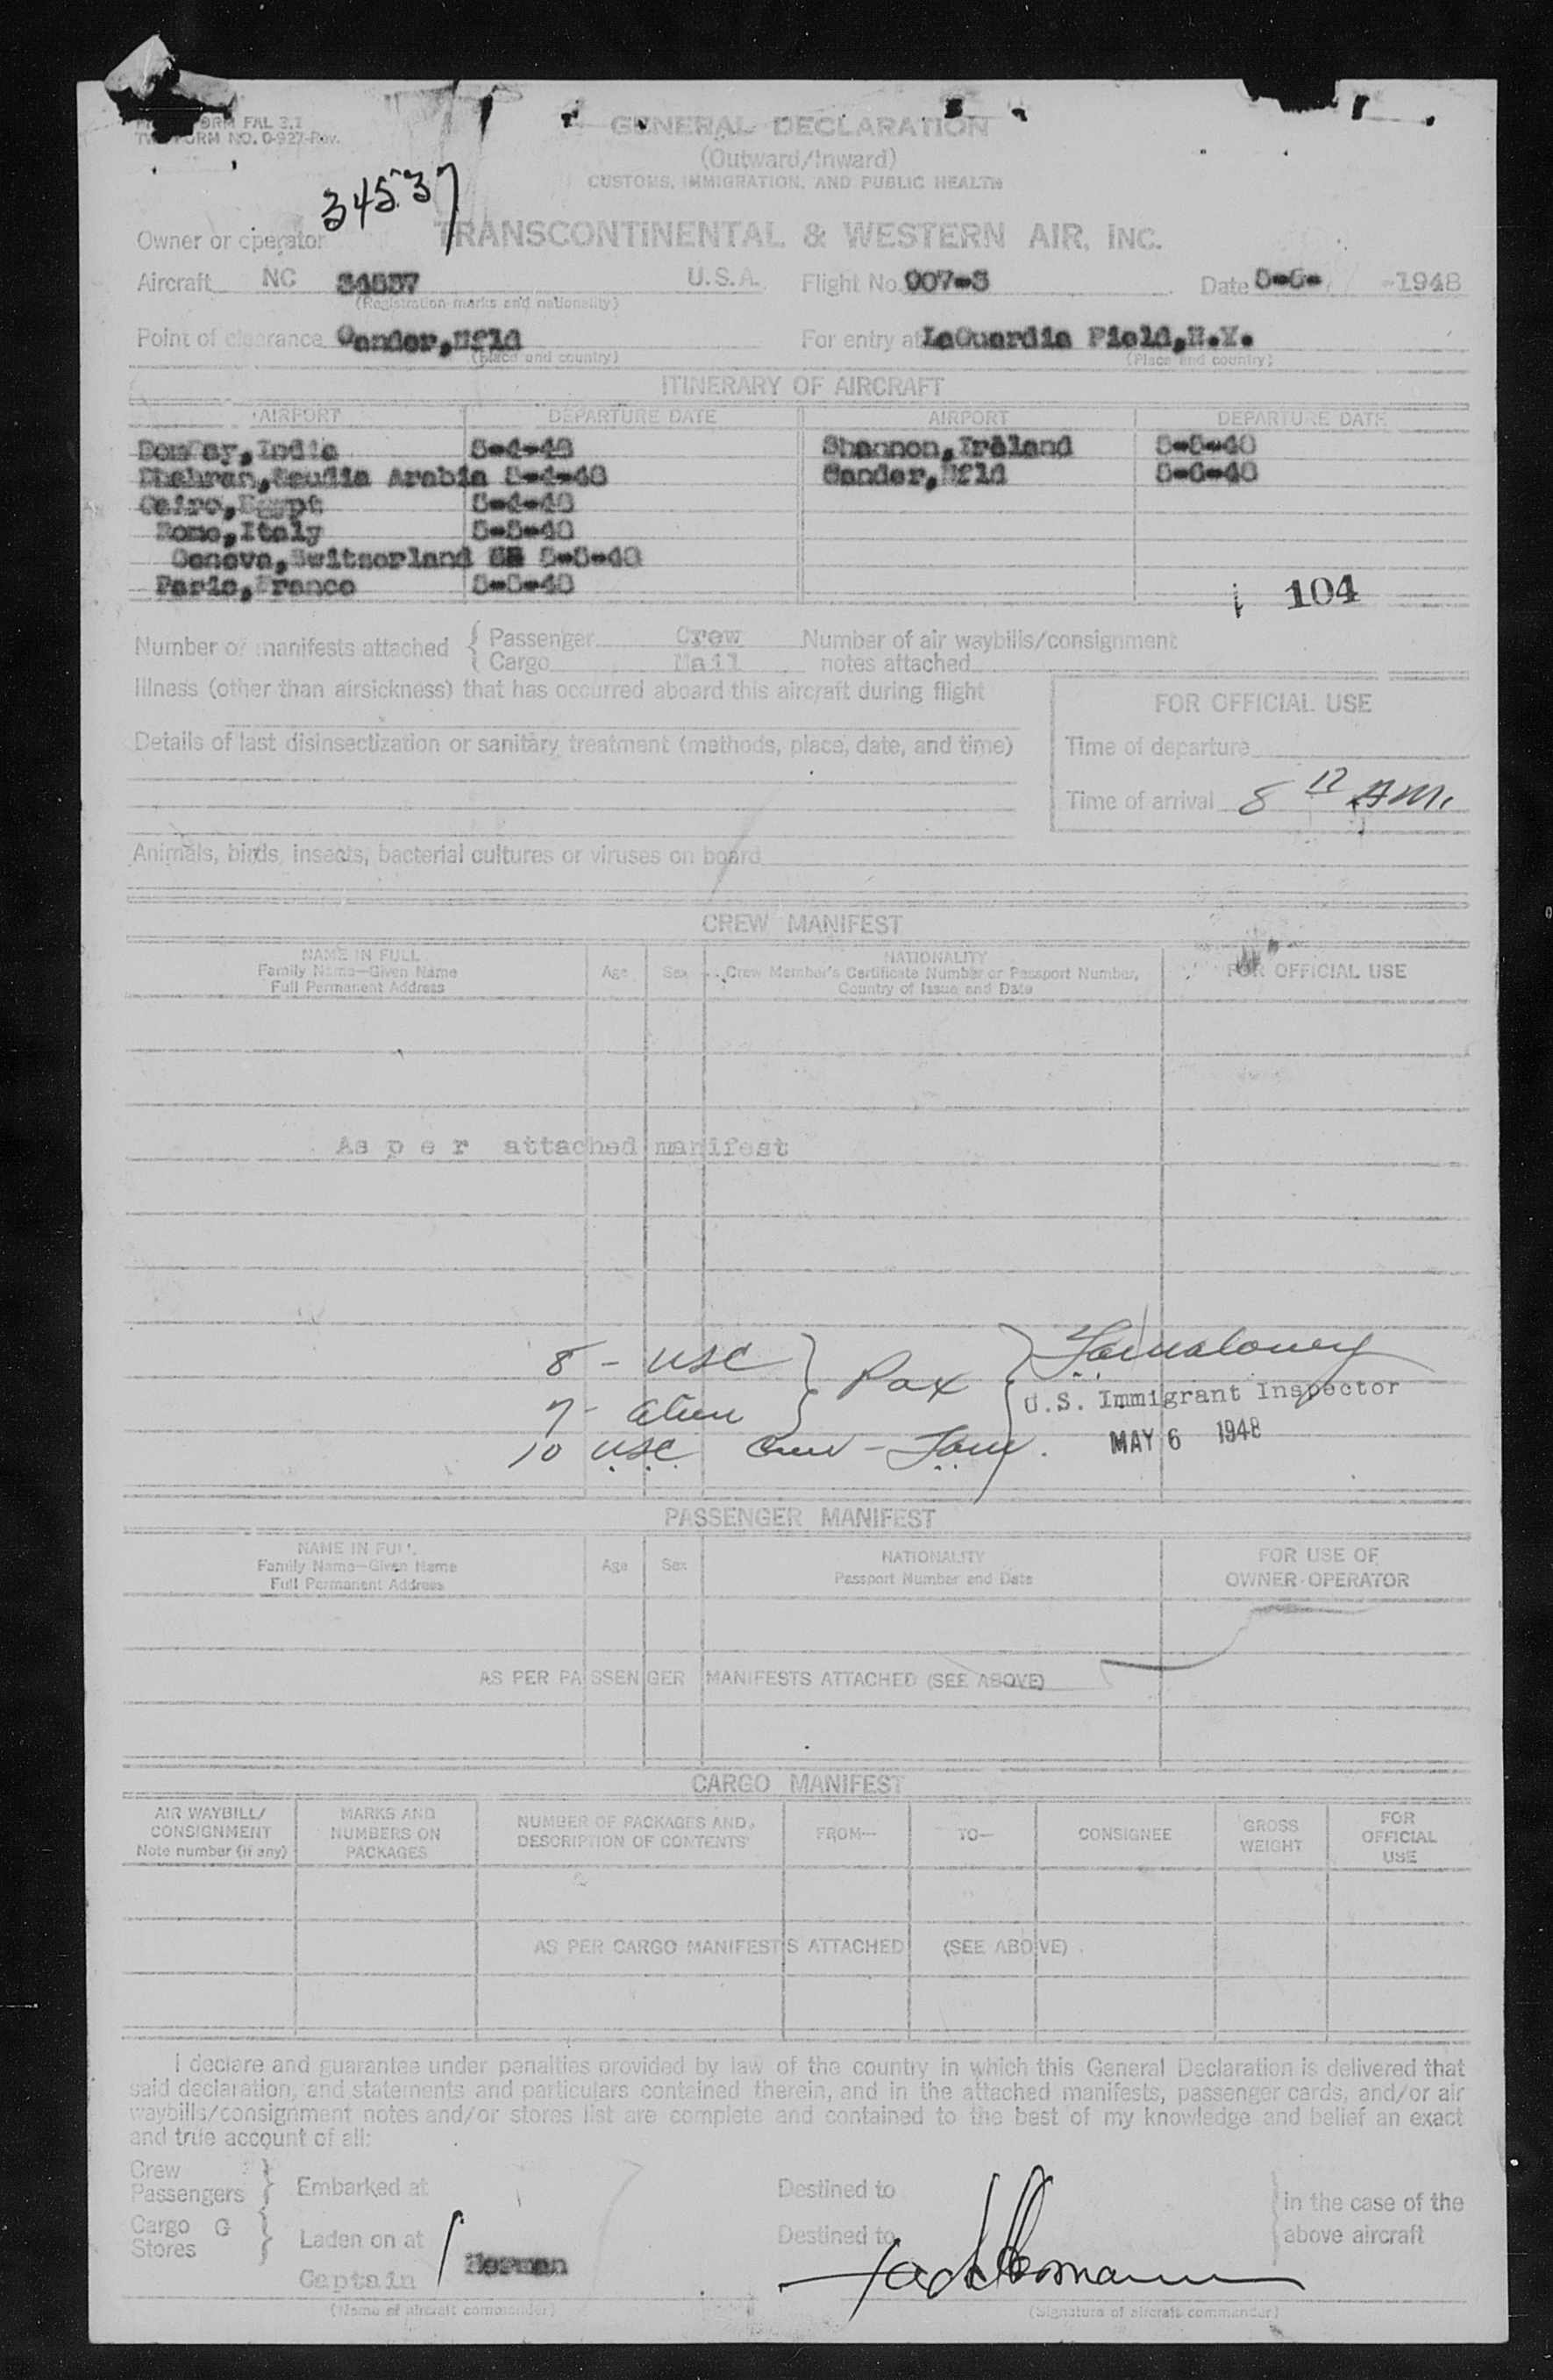 FORM FAL 3.1
FORM NO. 0-927-Rev.
GENERAL DECLARATION
(Outward/Inward)
CUSTOMS, IMMIGRATION, AND PUBLIC HEALTH
34537
Owner or operator TRANSCONTINENTAL & WESTERN AIR, INC.
Aircraft NC 34537 U.S.A. Flight No. 907-3 Date 5-6- -1948
(Registration marks and nationality)
Point of clearance Gander, Nfld For entry at LaGuardia Field, N.Y.
(Place and country) (Place and country)
ITINERARY OF AIRCRAFT
AIRPORT DEPARTURE DATE AIRPORT DEPARTURE DATE
Bombay, India 5-4-48 Shannon, Ireland 5-5-48
Dhahran, Saudia Arabia 5-4-48 Gander, Nfld 5-6-48
Cairo, Egypt 5-4-48
Rome, Italy 5-5-48
Geneva, Switserland 5-5-48
Paris, France 5-5-48
104
Number of manifests attached { Passenger Crew Number of air waybills/consignment
Cargo Mail notes attached
Illness (other than airsickness) that has occurred aboard this aircraft during flight
FOR OFFICIAL USE
Details of last disinsectization or sanitary treatment (methods, place, date, and time)
Time of departure
Time of arrival 8 12 AM.
Animals, birds, insects, bacterial cultures or viruses on board
CREW MANIFEST
NAME IN FULL
Family Name—Given Name
Full Permanent Address
Age Sex
NATIONALITY
Crew Member's Certificate Number or Passport Number,
Country of Issue and Date
FOR OFFICIAL USE
As p e r attached manifest
8 - USC } Pax
7 - Alien
U.S. Immigrant Inspector
10 USC Crew -
MAY 6 1948
PASSENGER MANIFEST
NAME IN FULL
Family Name—Given Name
Full Permanent Address
Age Sex
NATIONALITY
Passport Number and Date
FOR USE OF
OWNER-OPERATOR
AS PER PASSENGER MANIFESTS ATTACHED (SEE ABOVE)
CARGO MANIFEST
AIR WAYBILL/
CONSIGNMENT
Note number (if any)
MARKS AND
NUMBERS ON
PACKAGES
NUMBER OF PACKAGES AND
DESCRIPTION OF CONTENTS
FROM—
TO—
CONSIGNEE
GROSS
WEIGHT
FOR
OFFICIAL
USE
AS PER CARGO MANIFESTS ATTACHED (SEE ABOVE)
I declare and guarantee under penalties provided by law of the country in which this General Declaration is delivered that
said declaration, and statements and particulars contained therein, and in the attached manifests, passenger cards, and/or air
waybills/consignment notes and/or stores list are complete and contained to the best of my knowledge and belief an exact
and true account of all:
Crew
Passengers } Embarked at Destined to } in the case of the
Cargo G
Stores } Laden on at Destined to above aircraft
Captain Herman
(Name of aircraft commander) (Signature of aircraft commander)